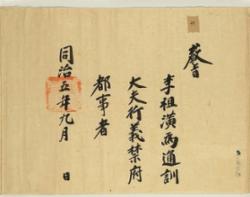 敎旨
李祖潢爲通訓
大夫行義禁府
都事者
同治五年九月　日